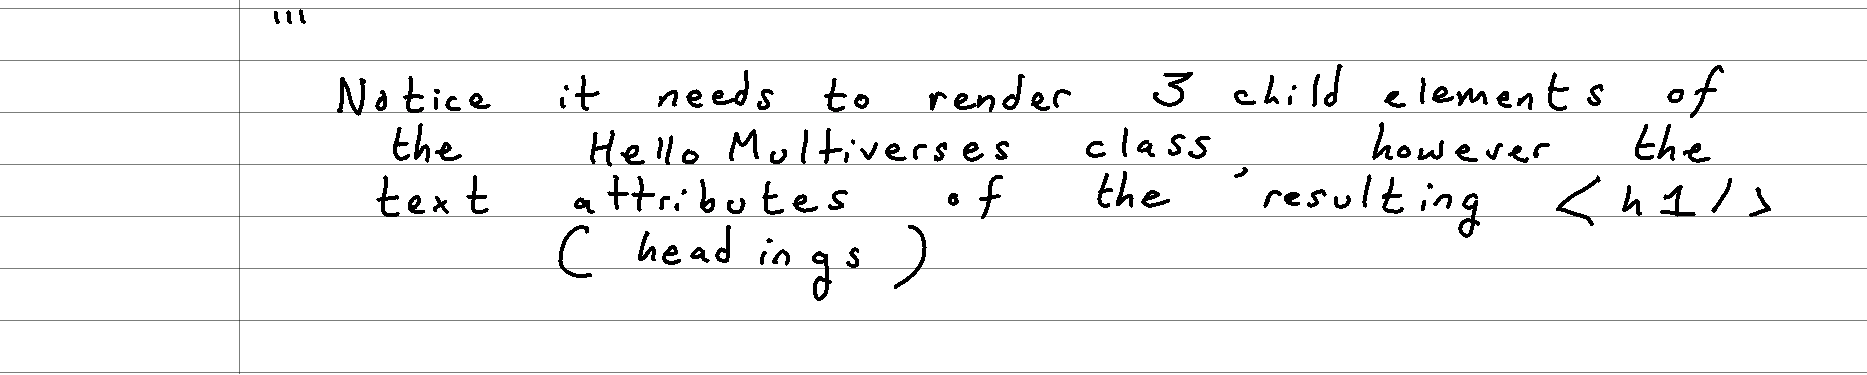 '''
Notice it needs to render 3 child elements of
the HelloMultiverses class, however the
text attributes of the resulting <h1/>
(headings)